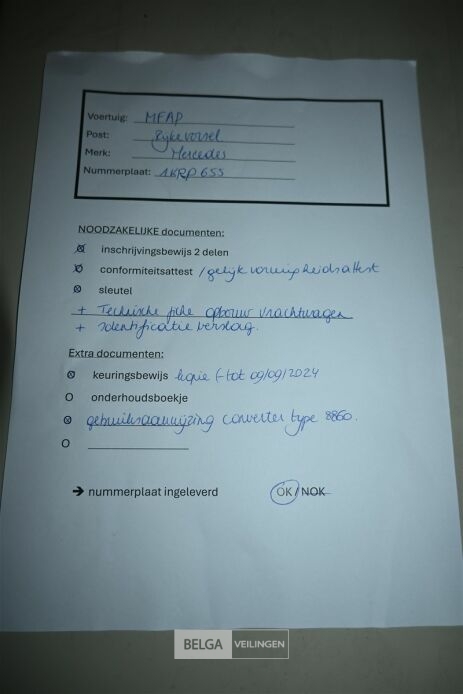 Voertuig: MFAP
Post: Rijkevorsel
Merk: Mercedes
Nummerplaat: 1KRP655
NOODZAKELIJKE documenten:
inschrijvingsbewijs 2 delen
conformiteitsattest / gelijkvormigheidsattest
sleutel
+ Technische fiche opbouw vrachtwagen
+ Identificatie verslag.
Extra documenten:
keuringsbewijs kopie (-tot 09/09/2024
O onderhoudsboekje
gebruiksaanwijzing converter type 8860.
O
➔ nummerplaat ingeleverd OK/NOK
BELGA VEILINGEN